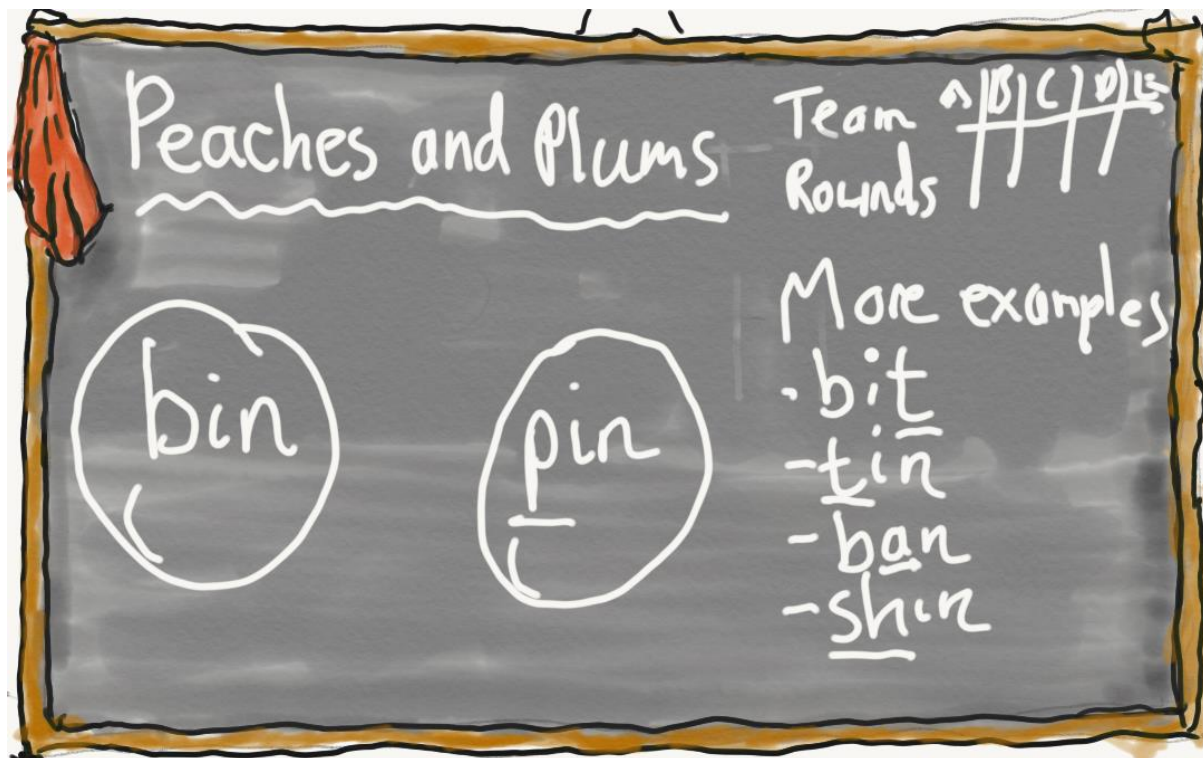 Peaches and Plums
Team
Rounds
A B C D E
bin
pin
More examples
· bit
- tin
- ban
- shin